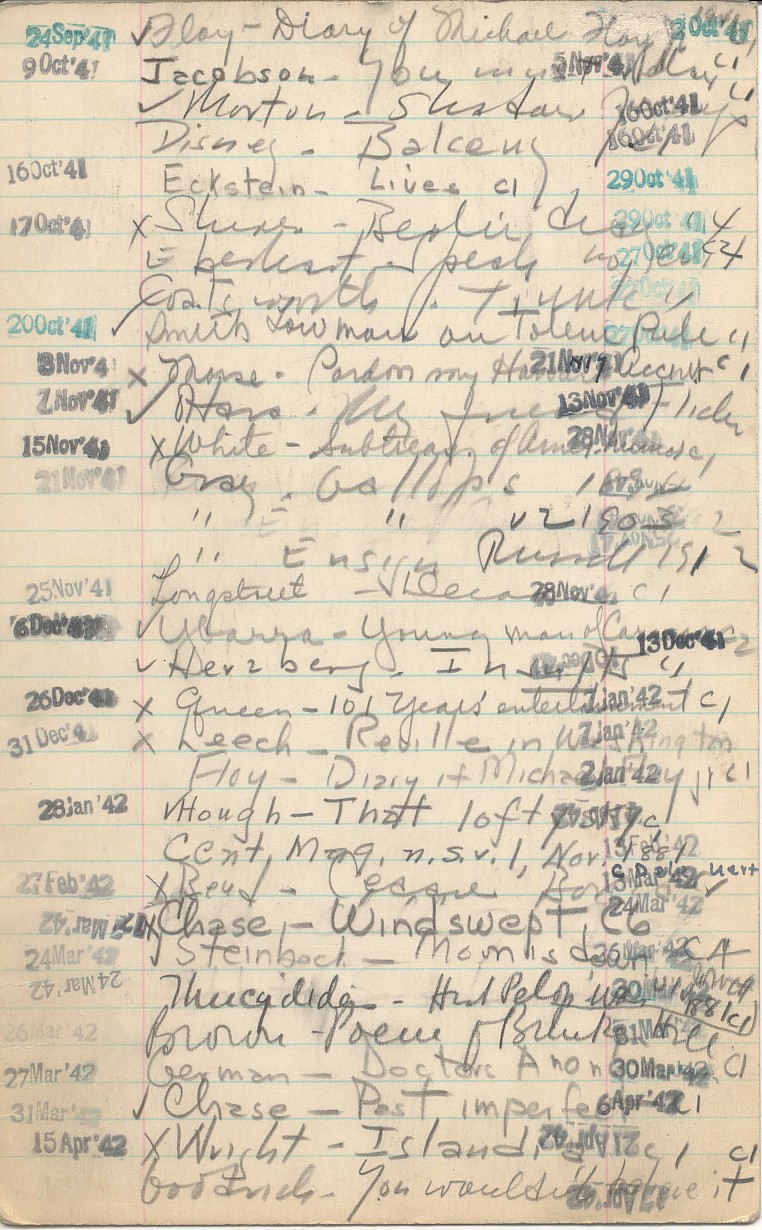 24Sep'41 ✓ Floy - Diary of Michael Floy 2 Oct'41
9 Oct'41 Jacobson - You 5 Nov'4 c1
✓ Morton - 16 Oct'41
Disney - Balcony 16 Oct'41
16 Oct'41 Eckstein - Lives c1 29 Oct'41
17 Oct'41 x Shirer - Berlin diary 29 Oct'41 c4
27 Oct'41
Coatsworth - Trunk c1
20 Oct'41 ✓ Smith Low man on Totem Pole c1
8 Nov'41 x Morse - Pardon my Harvard accent c1 21 Nov'41
7 Nov'41 ✓ Hass - My friend Flicka 13 Nov'41
15 Nov'41 x White - Subtreas. of Amer. humor c1 28 Nov'41
21 Nov'41 Gray - Gallops 1898
" " v2 1903
" Ensign Russell 1912
25 Nov'41 Longstreet - Decade c1 28 Nov'4
6 Dec'41 ✓ Ybarra - Young man of Caracas c2 13 Dec'41
✓ Herzberg - Insults c1
26 Dec'41 x Queen - 101 Years' entertainment c1 7 Jan'42
31 Dec'41 x Leech - Reville in Washington 7 Jan'42
Floy - Diary of Michael Floy jr c1 2 Jan'42
28 Jan'42 ✓ Hough - That lofty sky c1
Cent. Mag. n.s. v.1, Nov. 1881 13 Feb'42
27 Feb'42 x Beuf - Cesare Borgia 13 Mar'42 ✓
x Chase - Windswept, C6 24 Mar'42
24 Mar'42 ✓ Steinbeck - Moon is down C4 26 Mar'42
24 Mar'42 Thucydides - Hist Pelop. War 1881 c1 30 Mar
26 Mar'42 Brown - Poem of Bunker Hill 31 Mar
27 Mar'42 German - Doctors Anon c1 30 Mar'42
31 Mar'42 ✓ Chase - Past imperfect c1 6 Apr'42
15 Apr'42 x Wright - Islandia c1 21 Apr'42
Goodrich - You wouldn't believe it